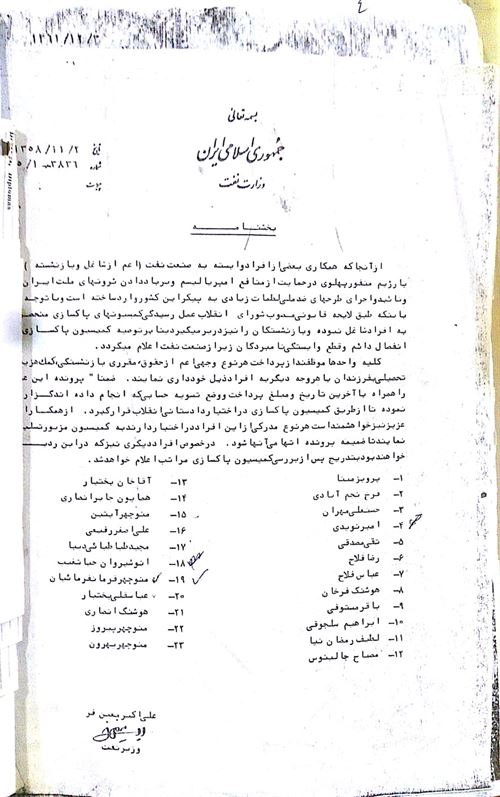 ۱۳۶۱/۱۲/۳
بسمه تعالی
جمهوری اسلامی ایران
وزارت نفت
تاریخ ۱۳۵۸/۱۱/۲
شماره
پیوست
بخشنامه
از آنجا که همکاری بعضی از افراد وابسته به صنعت نفت (اعم از شاغل و بازنشسته)
با رژیم منفور پهلوی در حمایت از منافع امپریالیسم و برباد دادن ثروتهای ملت ایران
و تائید و اجرای طرحهای ضد ملی لطمات زیادی به پیکر این کشور وارد ساخته است و با توجه
باینکه طبق لایحه قانونی مصوب شورای انقلاب عمل رسیدگی کمیسیونهای پاکسازی منحصر
به افراد شاغل نبوده و بازنشستگان را نیز در بر میگیرد بنا بر توصیه کمیسیون پاکسازی
انفصال دائم و قطع وابستگی نامبردگان زیر از صنعت نفت اعلام میگردد.
کلیه واحدها موظفند از پرداخت هر نوع وجهی اعم از حقوق، مقرری بازنشستگی، کمک هزینه
تحصیلی فرزندان یا هر وجه دیگر به افراد ذیل خودداری نمایند. ضمنا" پرونده این
را همراه با آخرین تاریخ و مبلغ پرداخت و وضع تسویه حسابی که انجام داده اند گزارش
نموده تا از طریق کمیسیون پاکسازی در اختیار دادستانی انقلاب قرار گیرد. از همکاران
عزیز نیز خواهشمند است هر نوع مدرکی از این افراد در اختیار دارند به کمیسیون مزبور تسلیم
نمایند تا ضمیمه پرونده اتهامی آنها شود. در خصوص افراد دیگری نیز که در این ردیف
خواهند بود بتدریج پس از بررسی کمیسیون پاکسازی مراتب اعلام خواهد شد.
۱- پرویز مینا
۲- فرخ نجم آبادی
۳- حسنعلی مهران
۴- امیر نویدی
۵- تقی مصدقی
۶- رضا فلاح
۷- عباس فلاح
۸- هوشنگ فرخان
۹- باقر مستوفی
۱۰- ابراهیم سلجوقی
۱۱- لطیف رمضان نیا
۱۲- مصباح جالینوس
۱۳- آقاخان بختیار
۱۴- همایون جابر انصاری
۱۵- منوچهر آیتین
۱۶- علی اصغر رفیعی
۱۷- مجید طباطبائی دیبا
۱۸- انوشیروان
۱۹- منوچهر فرمانفرمائیان
۲۰- عباسقلی بختیار
۲۱- هوشنگ انصاری
۲۲- منوچهر پیروز
۲۳- منوچهر بهرون
علی اکبر معین فر
وزیر نفت